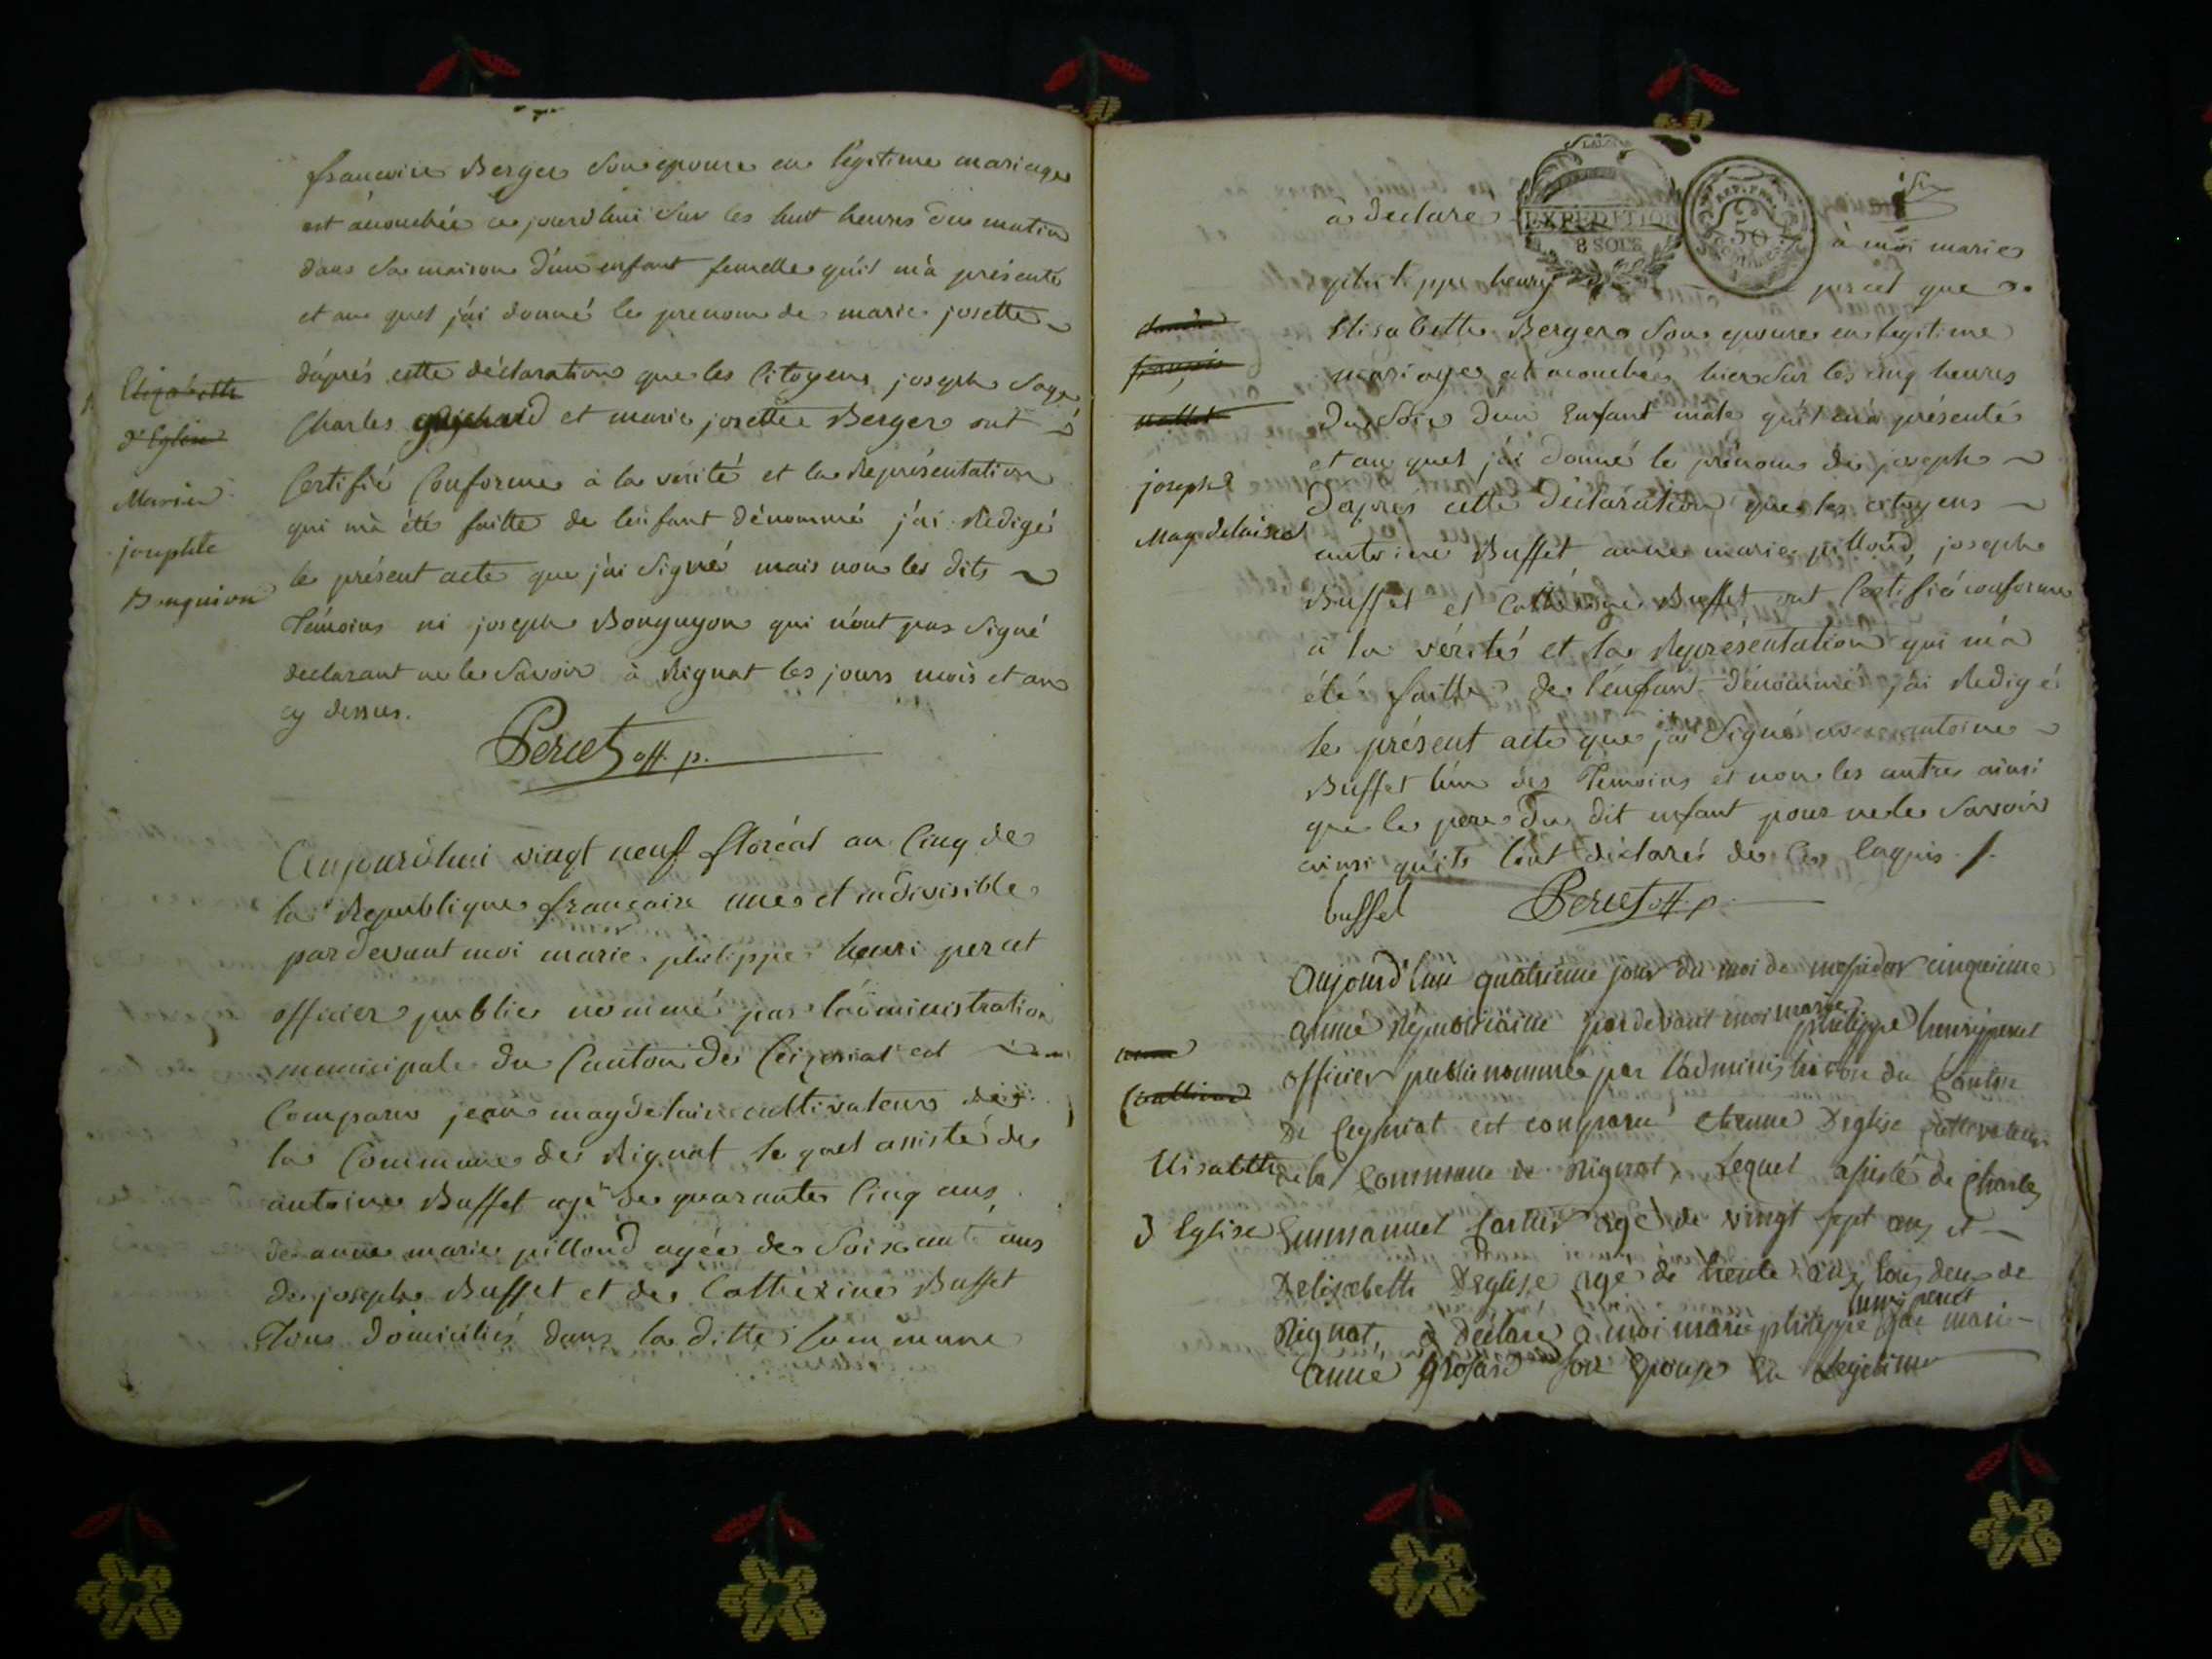 françoise Berger Son epouse en légitime mariage
est acouchée ce jourd'hui Sur les huit heures du matin
dans Sa maison d'un enfant femelle qu'il m'a présenté
et au quel j'ai donné le prenom de marie josette
d'après cette déclaration que les Citoyens joseph Sage
Charles guichard et marie josette Berger ont
Certifié Conforme à la vérité et la Représentation
qui m'a été faitte de lenfant dénommé j'ai Redigé
le présent acte que j'ai Signé mais non les dits
Témoins ni joseph Bonguyon qui n'ont pas Signé
declarant ne le Savoir à Rignat les jours mois et an
cy dessus.
Percet off. p.
Elizabette
d'Eglise
Marie
josephte
Bonguion
Aujourd'hui vingt neuf floréal an Cinq de
la Republique française une et indivisible
pardevant moi marie philippe henri percet
officier public nommé par l'administration
municipale du Canton de Ceizeriat est
Comparu jean magdelain cultivateur de
la Commune de Rignat le quel assisté de
antoine Buffet agé de quarante Cinq ans,
de anne marie pilloud agée de Soixante ans
de joseph Buffet et de Catherine Buffet
Tous domiciliés dans la ditte Commune
EXPEDITION
8 SOLS
50
à declaré à moi marie
philippe henry percet que
Elisabette Berger Son epouse en légitime
mariage est acouchée hier Sur les cinq heures
du Soir d'un Enfant male qu'il m'a présenté
et au quel j'ai donné le prénom de joseph
D'après cette Déclaration que les citoyens
antoine Buffet, anne marie pilloud, joseph
Buffet et Catherine Buffet ont Certifié conforme
à la vérité et la Représentation qui m'a
été faitte de l'enfant dénommé j'ai Redigé
le présent acte que j'ai Signé avec antoine
Buffet l'un des Témoins et non les autres ainsi
que le pere du dit enfant pour ne le Savoir
ainsi qu'ils l'ont déclaré de ce enquis ./.
buffet Percet off. p.
françois
joseph
Magdelaine
Aujourd'hui quatrieme jour du moi de messidor cinquieme
année Républicaine pardevant moi marie philippe henri percet
officier public nommé par l'administration du Canton
De Ceyzeriat est comparu etienne Deglise Cultivateur
de la Commune de Rignat, Lequel assisté de Charles
Emmanuel Cartier agé de vingt sept ans et
Delizabette Deglise agé de trente ans, tous deux de
Rignat, à Déclaré à moi marie philippe henri percet que marie
anne Grosard son Epouse En Légitime
Elisabette
d Eglise